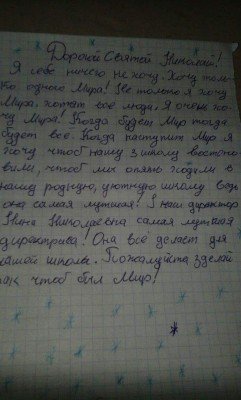 Дорогой Святой Николай!
Я себе ничего не хочу. Хочу толь-
ко одного Мира! Не только я хочу
Мира, хотят все люди. Я очень хо-
чу Мира! Когда будет Мир тогда
будет всё. Когда наступит Мир я
хочу чтоб нашу з школу востоно-
вили, чтоб мы опять ходили в
нашу родную, уютную школу. Ведь
она самая лутшая! И наш директор
Инна Николаевна самая лутшая
директриса! Она всё делает для
нашей школы. Пожалуйста зделай
так чтоб был Мир!